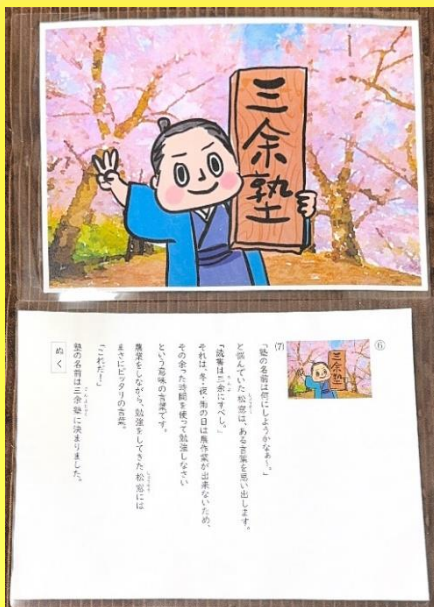 三余塾
⑥
(7)
三余塾
「塾の名前は何にしようかなぁ〜。」
と悩んでいた松窓は、ある言葉を思い出します。
「読書は三余にすべし。」
それは、冬・夜・雨の日は農作業が出来ないため、
その余った時間を使って勉強しなさい
という意味の言葉です。
農業をしながら、勉強をしてきた松窓には
まさにピッタリの言葉。
「これだ！」
塾の名前は三余塾に決まりました。
ぬく